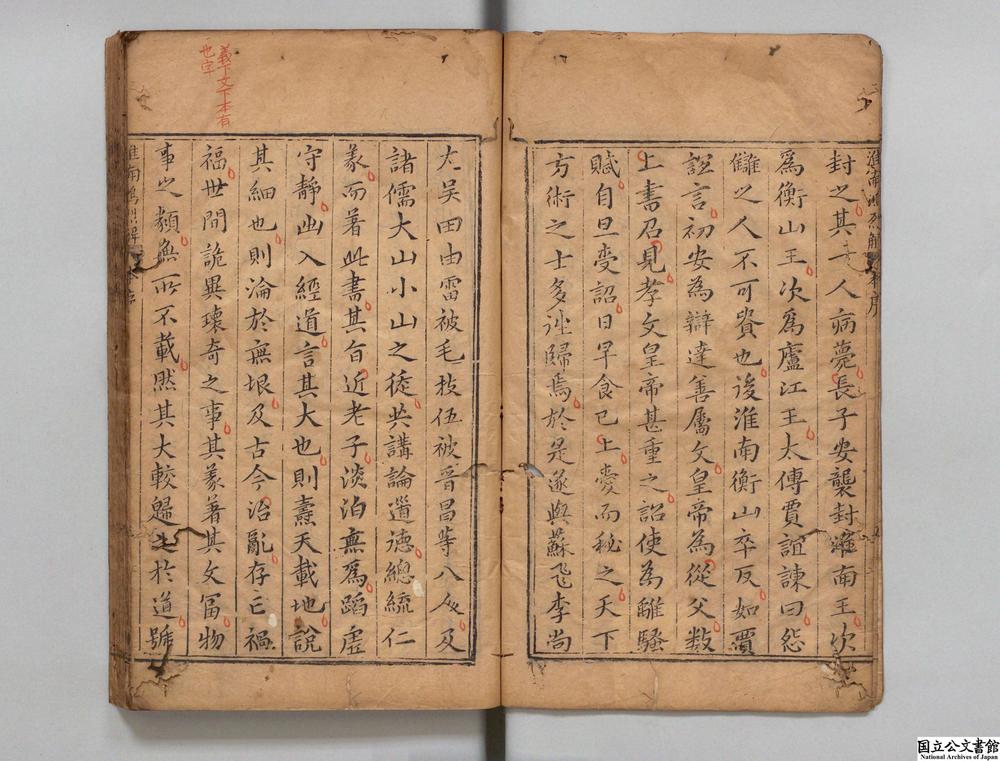 封之其一人病薨長子安襲封淮南王次
爲衡山王次爲廬江王太傅賈誼諫曰怨
讎之人不可貴也後淮南衡山卒反如賈
誼言初安為辯達善屬文皇帝為從父數
上書召見孝文皇帝甚重之詔使為離騷
賦自旦受詔日早食已上愛而秘之天下
方術之士多往歸焉於是遂與蘇飛李尚
左吴田由雷被毛披伍被晋昌等八人及
諸儒大山小山之徒共講論道德總統仁
義而著此書其旨近老子淡泊無爲蹈虛
守静出入經道言其大也則燾天載地說
其細也則淪於無垠及古今治亂存亡禍
福世間詭異瓌奇之事其義著其文冨物
事之類無所不載然其大較歸之於道號
淮南鴻烈解
義下文下本有
也字
国立公文書館
National Archives of Japan